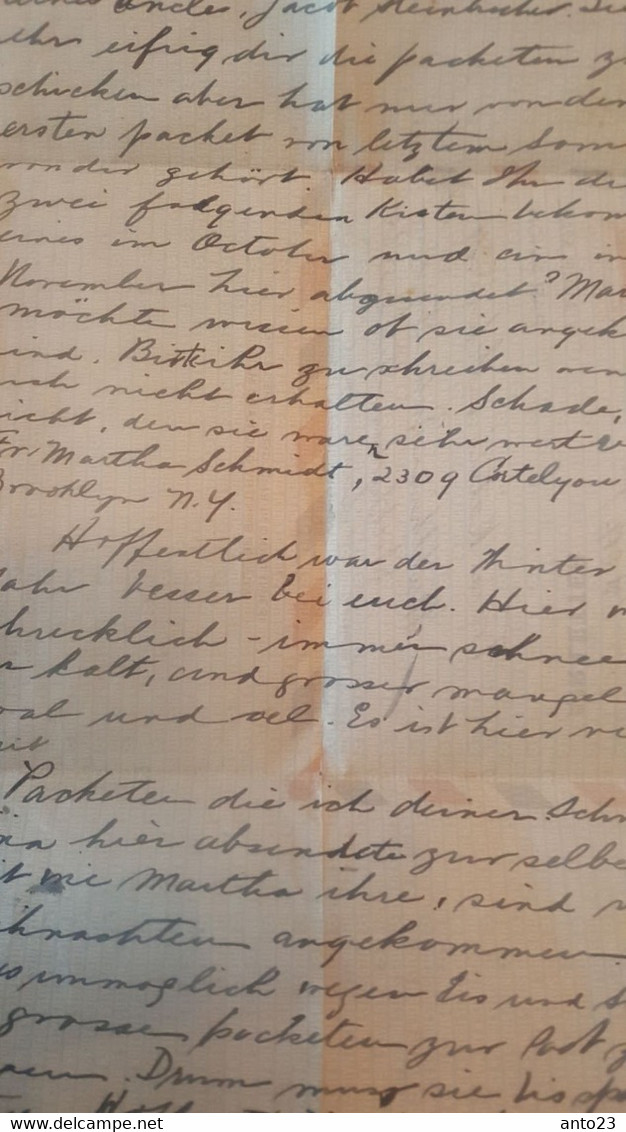 Uncle, Jacob
eifrig dir die packeten zu
schicken aber hat nur von der
ersten packet von letztem Som
von dir gehört. Habet Ihr die
zwei folgenden Kisten bekom
eines im October und ein im
November hier abgesendet? Mar
möchte wissen ob sie angek
ind. Bitte ihr zu schreiben wen
nicht erhalten. Schade,
icht, den sie waren sehr wert
Martha Schmidt, 2309 Cortelyou
Brooklyn N.Y.
Hoffentlich war der Winter
Jahr besser bei euch. Hier w
hrecklich - immer schnee
r kalt, und grosser mangel
oal und oel. Es ist hier
eit
Packeten die ich deiner Schw
hier absendete zur selbe
it wie Martha ihre, sind
ihnachten angekommen
unmoglich wegen Eis und S
grosse packeten zur Post z
Drum muss sie bis
www.delcampe.net
anto23